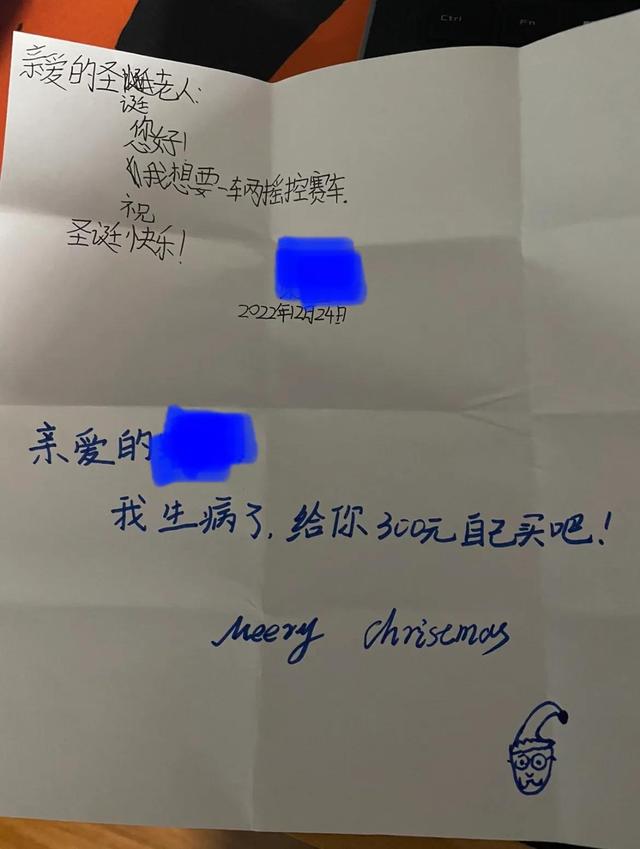 Ctrl
Fn
亲爱的圣诞老人:
诞
您好!
我想要一车两摇控赛车.
祝
圣诞快乐!
2022年12月24日
亲爱的
我生病了,给你300元自己买吧!
Meery Christmas